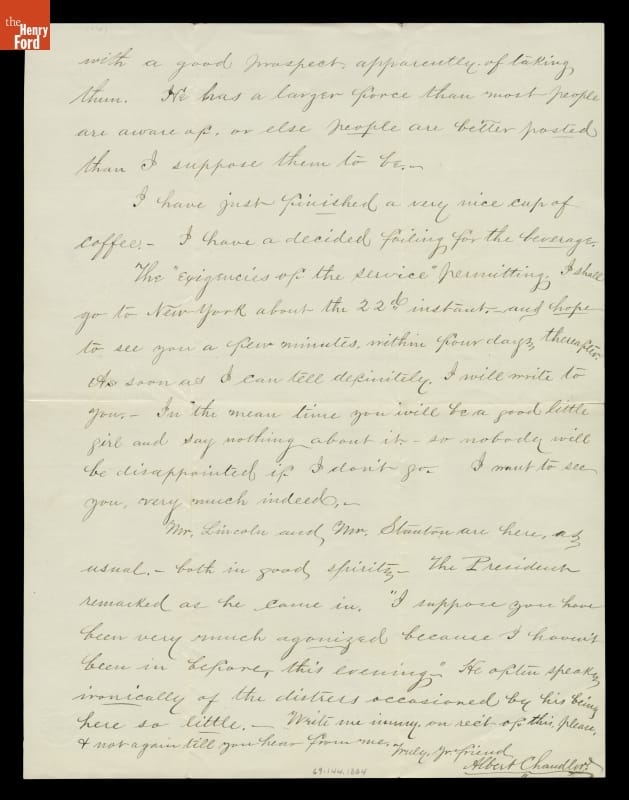 the
Henry
Ford
with a good prospect, apparently, of taking
them. He has a larger force than most people
are aware of, or else people are better posted
than I suppose them to be.—
I have just finished a very nice cup of
coffee.— I have a decided failing for the beverage.
The "exigencies of the service" permitting, I shall
go to New York about the 22d instant,— and hope
to see you a few minutes, within four days, thereafter.
As soon as I can tell definitely, I will write to
you.— In the mean time you will be a good little
girl and say nothing about it— so nobody will
be disappointed if I don't go. I want to see
you, very much indeed.—
Mr. Lincoln and Mr. Stanton are here, as
usual.— both in good spirits,— The President
remarked as he came in. "I suppose you have
been very much agonized because I haven't
been in before, this evening". He often speaks
ironically of the distress occasioned by his being
here so little.— Write me on rec't of this, please,
& not again till you hear from me. Truly, Yr. friend
Albert Chandler.
69.144.1884